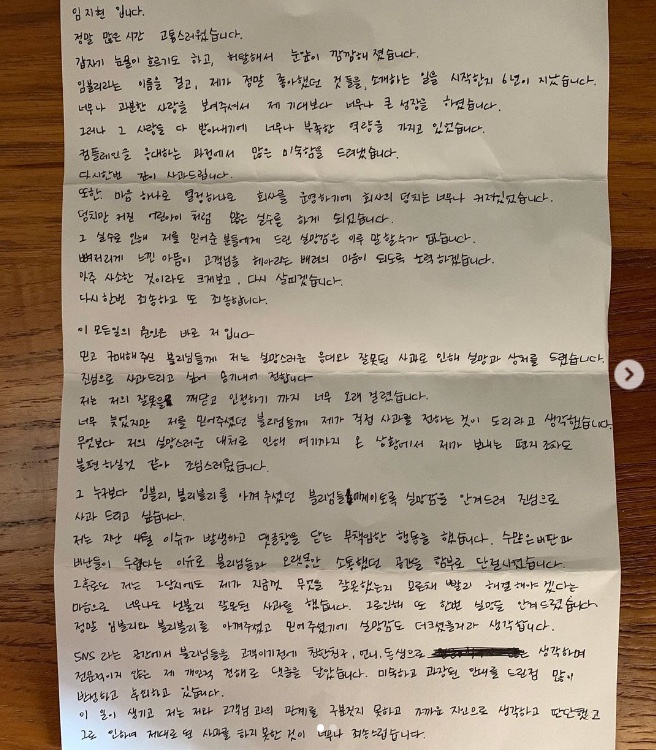 임지현 입니다.
정말 많은 시간 고통스러웠습니다.
갑자기 눈물이 흐르기도 하고, 허탈해서 눈앞이 깜깜해 졌습니다.
임블리라는 이름을 걸고, 제가 정말 좋아했던 것들을, 소개하는 일을 시작한지 6년이 지났습니다.
너무나 과분한 사랑을 보여주셔서 제 기대보다 너무나 큰 성장을 하였습니다.
그러나 그 사랑을 다 받아내기에 너무나 부족한 역량을 가지고 있었습니다.
컴플레인을 응대하는 과정에서 많은 미숙함을 드려냈습니다.
다시한번 깊이 사과드립니다.
또한. 마음 하나로 열정하나로 회사를 운영하기에 회사의 덩치는 너무나 커져있었습니다.
덩치만 커진 어린아이 처럼 많은 실수를 하게 되었습니다.
그 실수로 인해 저를 믿어준 분들에게 드린 실망감은 이루 말할수가 없습니다.
뼈저리게 느낀 아픔이 고객님을 헤아리는 배려의 마음이 되도록 노력하겠습니다.
아주 사소한 것이라도 크게보고, 다시 살피겠습니다.
다시한번 죄송하고 또 죄송합니다.
이 모든일의 원인은 바로 저 입니다
믿고 구매해주신 블리님들께 저는 실망스러운 응대와 잘못된 사과로 인해 실망과 상처를 드렸습니다.
진심으로 사과드리고 싶어 용기내어 전합니다
저는 저의 잘못을 깨닫고 인정하기 까지 너무 오래 걸렸습니다.
너무 늦었지만 저를 믿어주셨던 블리님들께 제가 직접 사과를 전하는 것이 도리라고 생각했습니다.
무엇보다 저의 실망스러운 대처로 인해 여기까지 온 상황에서 제가 보내는 편지 조차도
불편하실것 같아 조심스러웠습니다.
그 누구보다 임블리, 블리블리를 아껴 주셨던 블리님들께 이토록 실망감을 안겨드려 진심으로
사과 드리고 싶습니다.
저는 지난 4월 이슈가 발생하고 댓글창을 닫는 무책임한 행동을 했습니다. 수많은 비판과
비난들이 두렵다는 이유로 블리님들과 오랫동안 소통했던 공간을 함부로 단절시켰습니다.
그후로도 저는 그당시에도 제가 지금껏 무엇을 잘못했는지 모른채 빨리 해결해야 겠다는
마음으로 너무나도 섣불리 잘못된 사과를 했습니다. 그로인해 또 한번 실망을 안겨드렸습니다.
정말 임블리와 블리블리를 아껴주셨고 믿어주셨기에 실망감도 더크셨을거라 생각합니다.
SNS 라는 공간에서 블리님들을 고객이기전에 친한친구, 언니, 동생으로 생각하며
전문적이지 않은 제 개인적 견해로 댓글을 달았습니다. 미숙하고 과장된 안내를 드린점 많이
반성하고 후회하고 있습니다.
이 일이 생기고 저는 저와 고객님과의 관계를 구분짓지 못하고 가까운 지인으로 생각하고 판단했고
그로 인하여 제대로 된 사과를 하지 못한 것이 너무나 죄송스럽습니다.